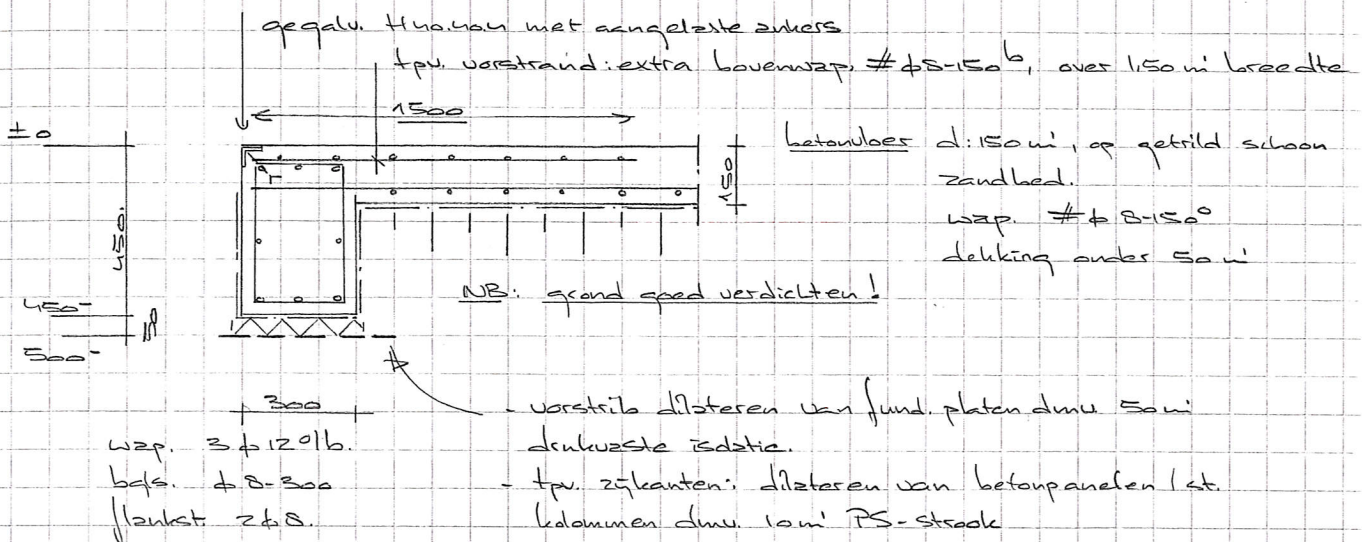 gegalv. H40.40.4 met aangelaste ankers
tpv. vorstrand: extra bovenwap. # ϕ8-150ᵇ, over 1,50 m' breedte
1500
±0
betonvloer d:150 m', op getrild schoon
zandbed.
wap. # ϕ 8-150⁰
dekking onder 50 m'
150
450.
NB: grond goed verdichten!
450-
50
500-
300
- vorstrib dilateren van fund. platen dmv. 50 m'
drukvaste isolatie.
- tpv. zijkanten: dilateren van betonpanelen / st.
kolommen dmv. 10 m' PS-strook
wap. 3 ϕ 12 o/b.
bgls. ϕ 8-300
flankst. 2 ϕ 8.